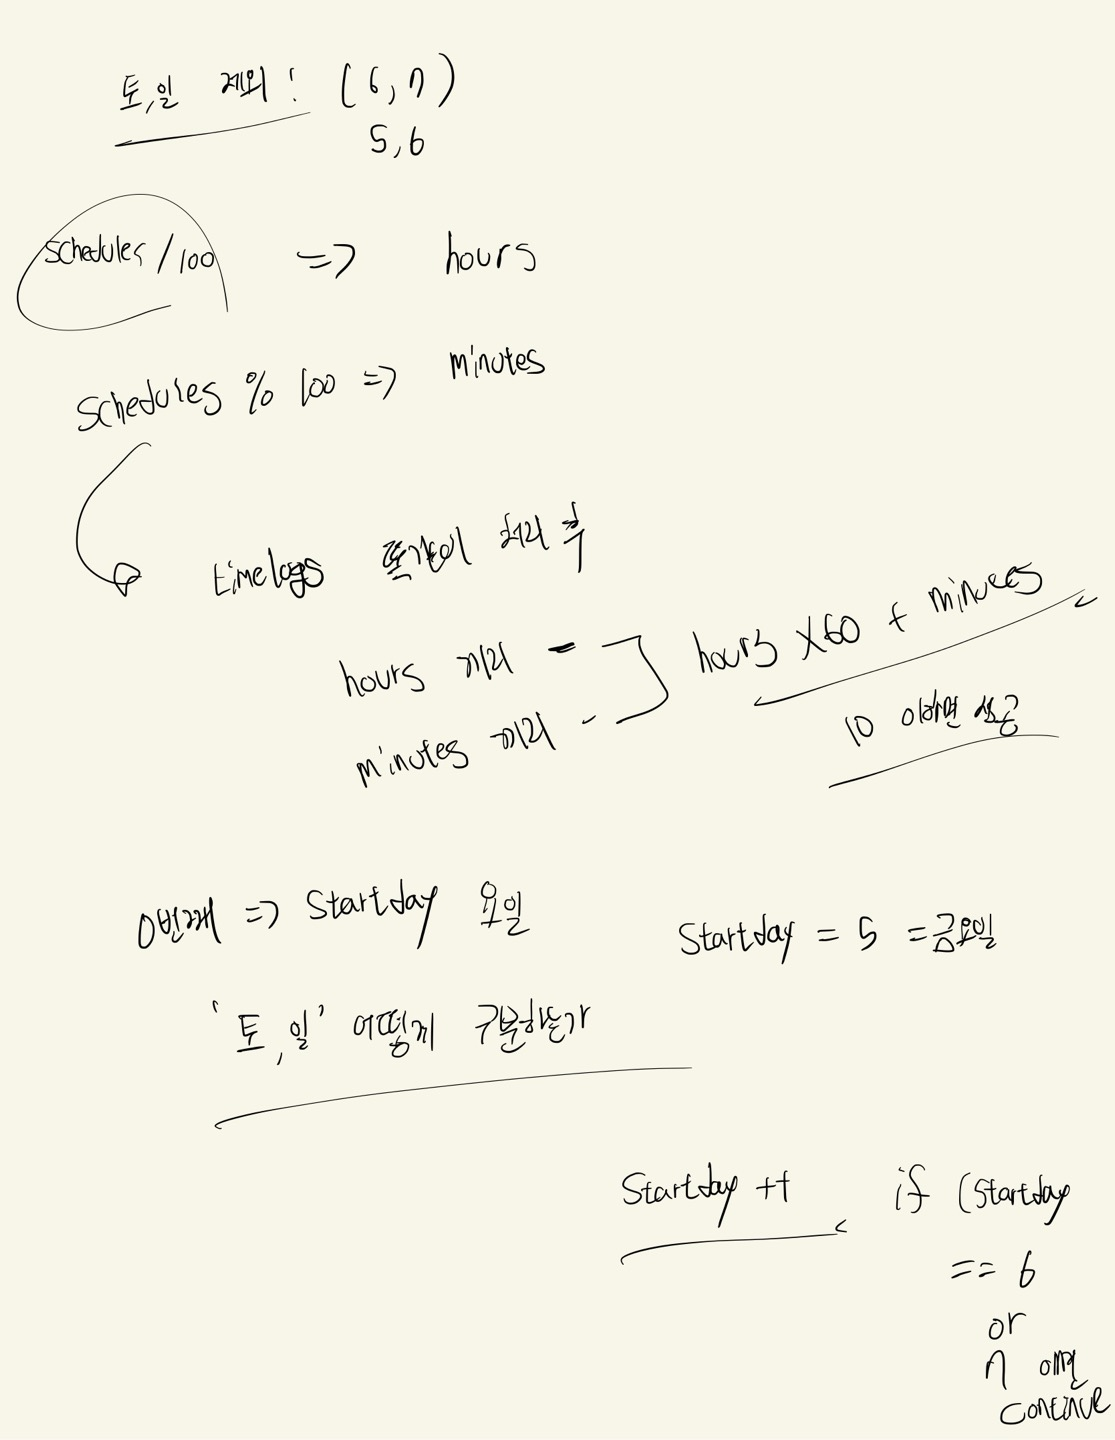 토,일 제외! (6,7)
5,6
schedules/100 => hours
schedules % 100 => minutes
timelogs 똑같이 처리 후
hours 끼리 -
minutes 끼리 -
hours X60 + minutes
10 이하면 성공
0번째 => Startday 요일
Startday = 5 = 금요일
'토,일' 어떻게 구분하는가
Startday ++
if (Startday
== 6
or
7 이면
continue